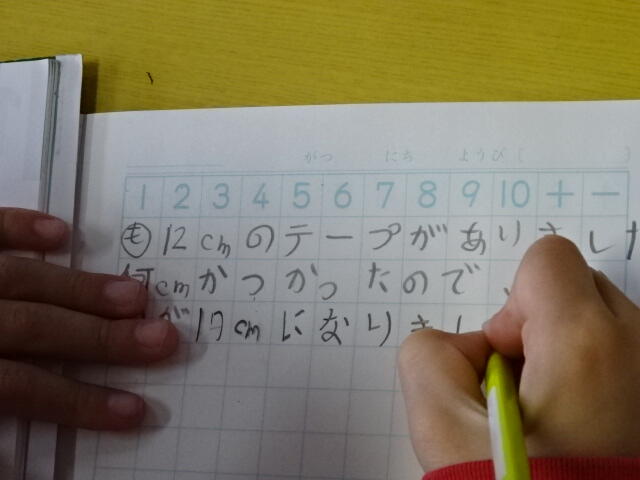 がつ にち ようび（ ）
1 2 3 4 5 6 7 8 9 10 + −
も 12cmのテープがありました
何cmかつかったので
が17cmになりまし